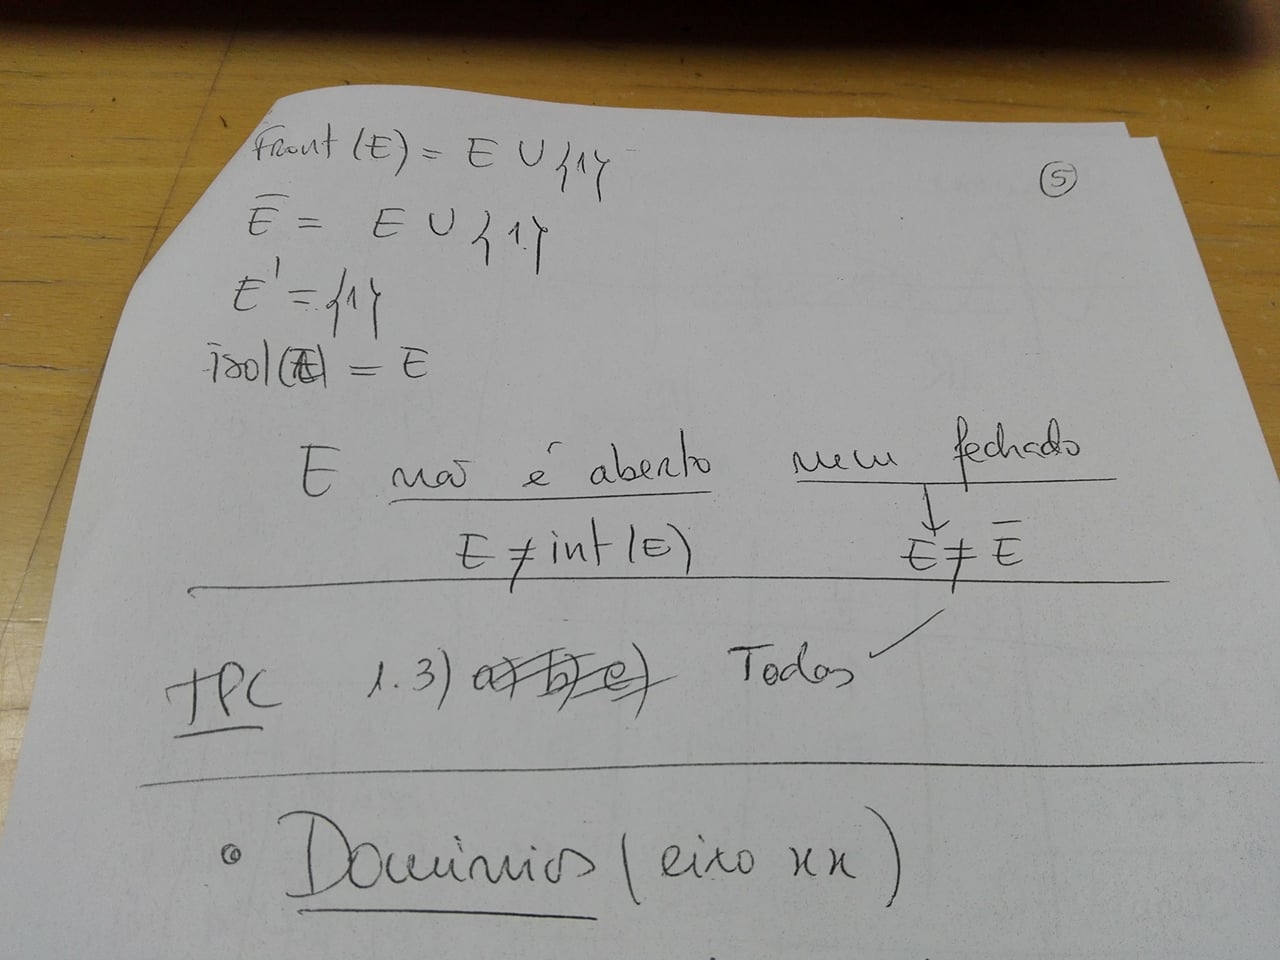 Front (E) = E ∪ {1}
⑤
E̅ = E ∪ {1}
E' = {1}
isol(E) = E
E não é aberto nem fechado
E ≠ int (E) E ≠ E̅
TPC 1.3) a) b) e) Todas
• Domínios (eixo xx)